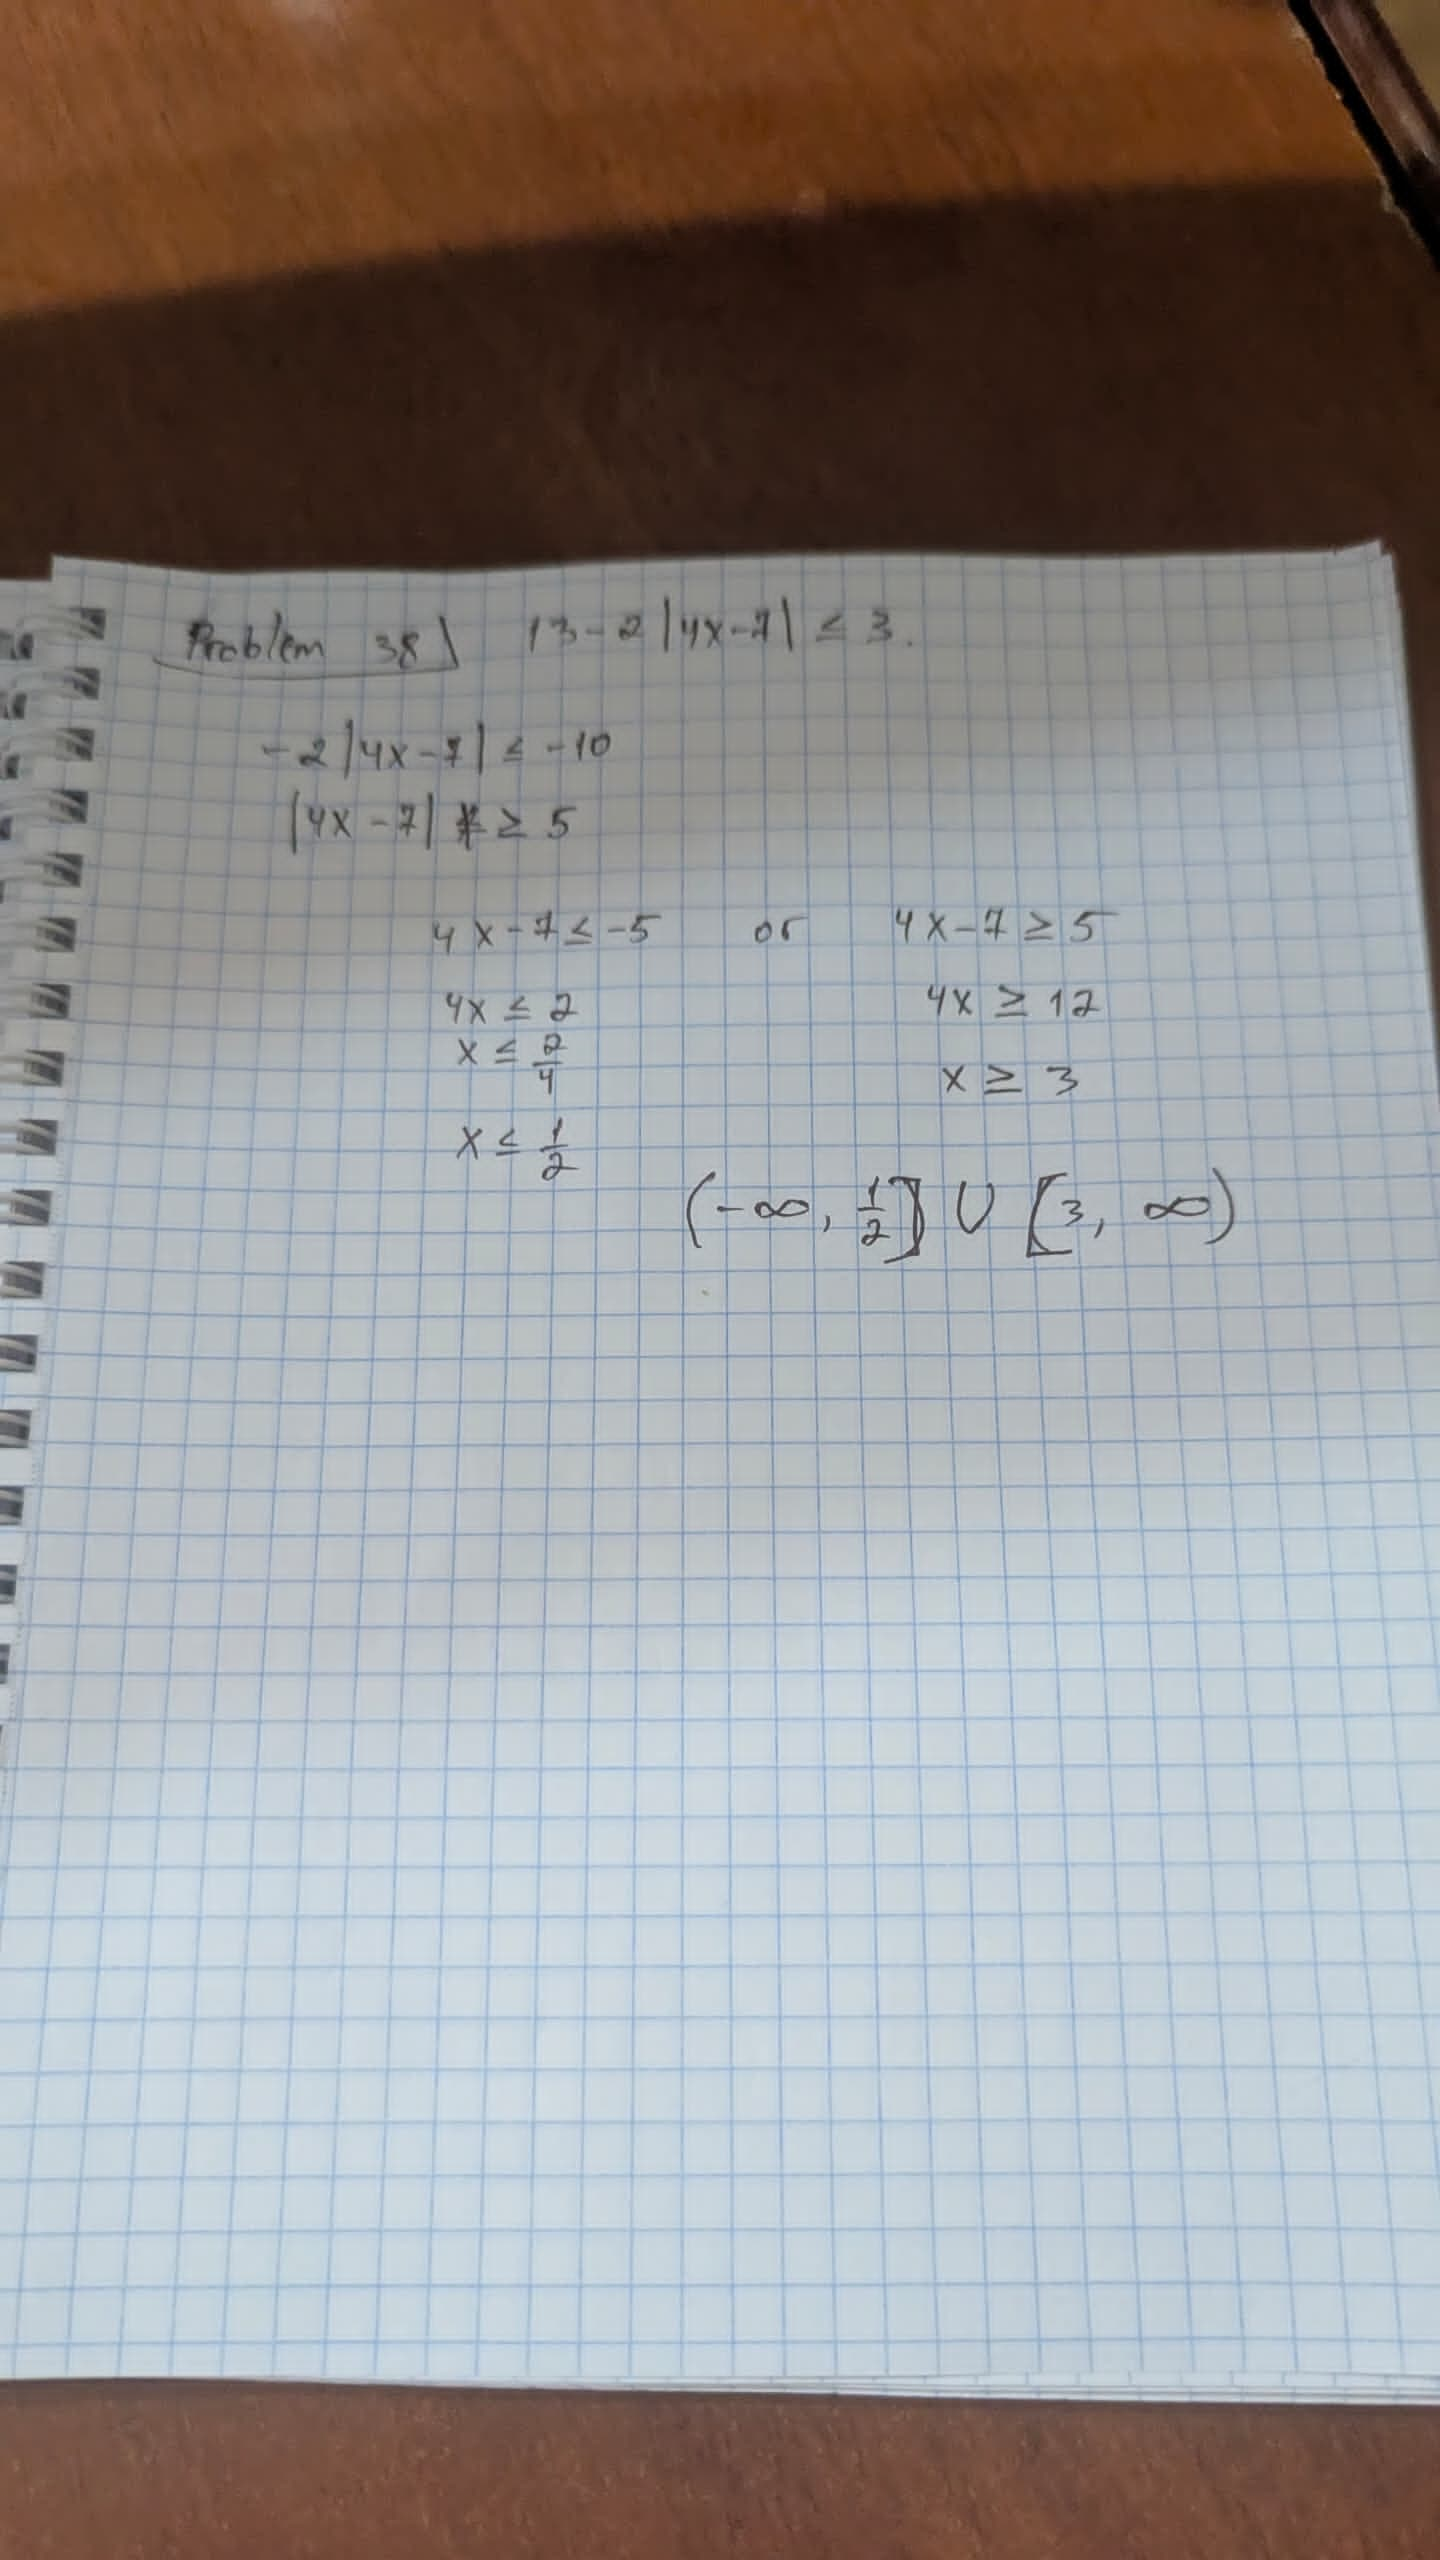 Problem 38) 13-2|4x-7| ≤ 3.
-2|4x-7| ≤ -10
|4x-7| ≥ 5
4x-7 ≤ -5 or 4x-7 ≥ 5
4x ≤ 2 4x ≥ 12
x ≤ 2/4
x ≥ 3
x ≤ 1/2
(-∞, 1/2] ∪ [3, ∞)